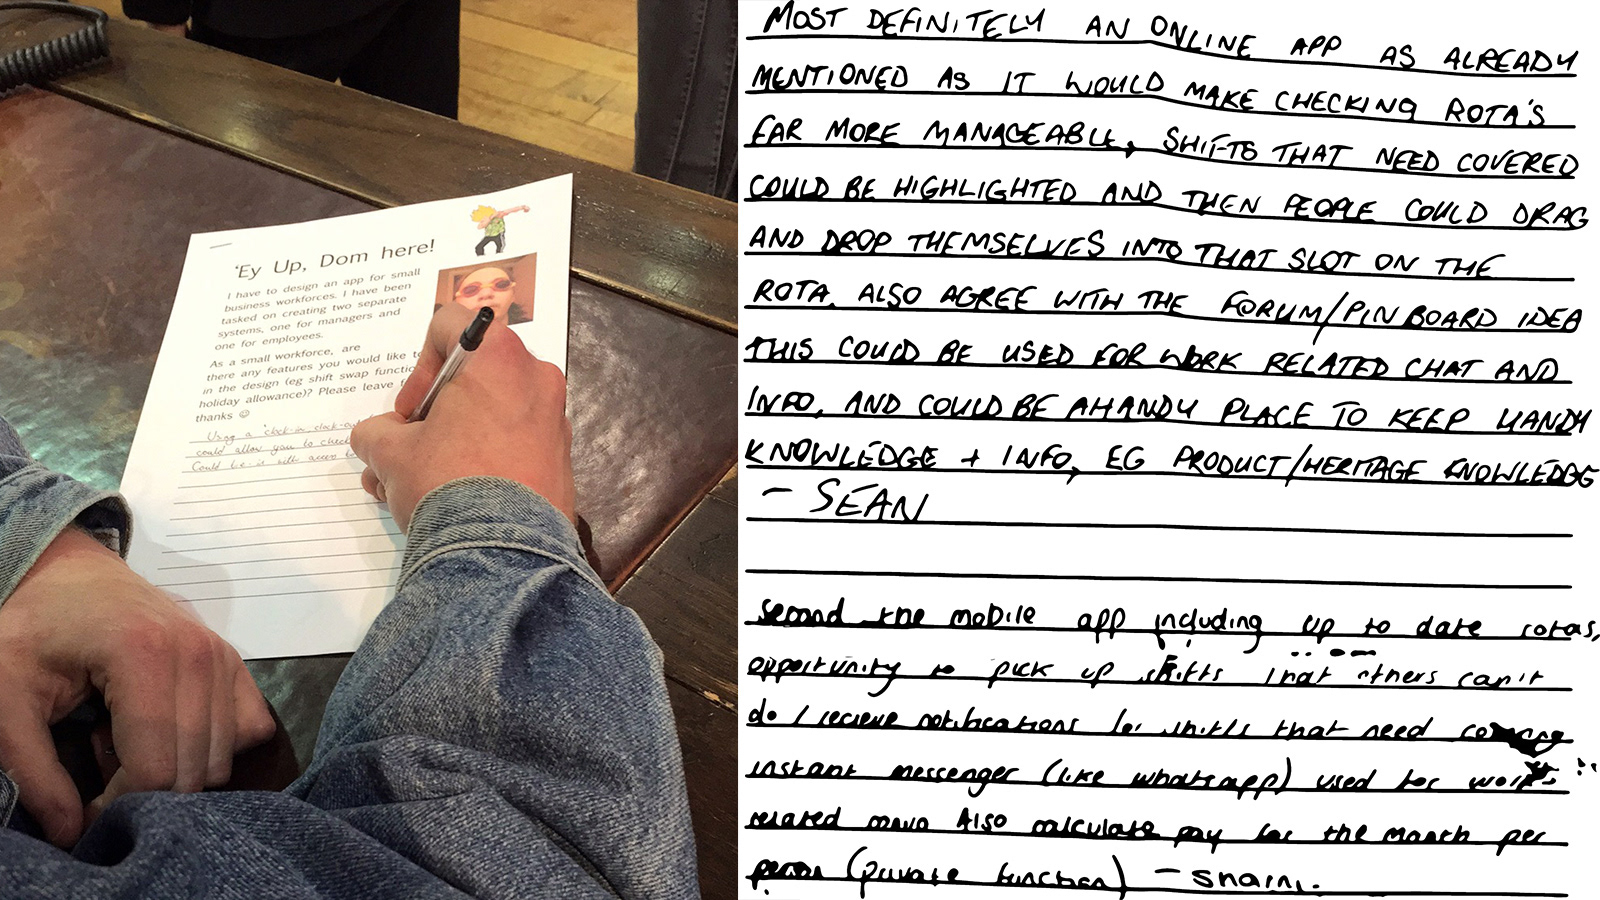 'Ey Up, Dom here!
I have to design an app for small
business workforces. I have been
tasked on creating two separate
systems, one for managers and
one for employees.
As a small workforce, are
there any features you would like to
in the design (eg shift swap functio
holiday allowance)? Please leave f
thanks ☺
Using a 'clock-in, clock-out
could allow you to check
Could be is with access
MOST DEFINITELY AN ONLINE APP AS ALREADY
MENTIONED AS IT WOULD MAKE CHECKING ROTA'S
FAR MORE MANAGEABLE, SHIFTS THAT NEED COVERED
COULD BE HIGHLIGHTED AND THEN PEOPLE COULD DRAG
AND DROP THEMSELVES INTO THAT SLOT ON THE
ROTA. ALSO AGREE WITH THE FORUM/PIN BOARD IDEA
THIS COULD BE USED FOR WORK RELATED CHAT AND
INFO, AND COULD BE A HANDY PLACE TO KEEP HANDY
KNOWLEDGE + INFO, EG PRODUCT/HERITAGE KNOWLEDGE
- SEAN
second the mobile app including up to date rotas,
opportunity to pick up shifts that others can't
do / recieve notifications for shifts that need
instant messenger (like whatsapp) used for work
related Also calculate pay for the month per
person (private function) -